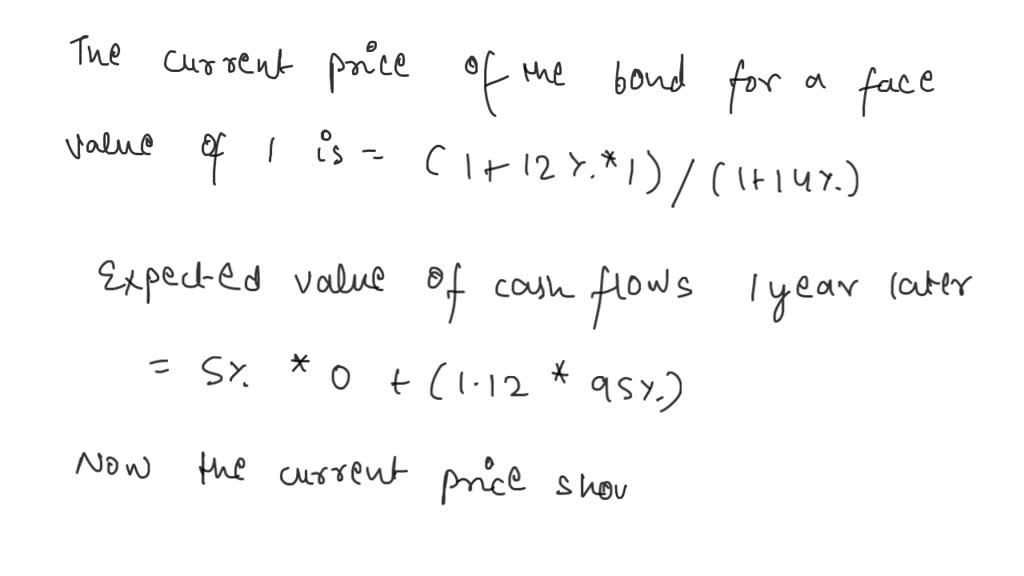 The current price of the bond for a face
value of 1 is = (1+12%*1)/(1+14%)
Expected value of cash flows 1 year later
= 5% * 0 + (1.12 * 95%)
Now the current price shou